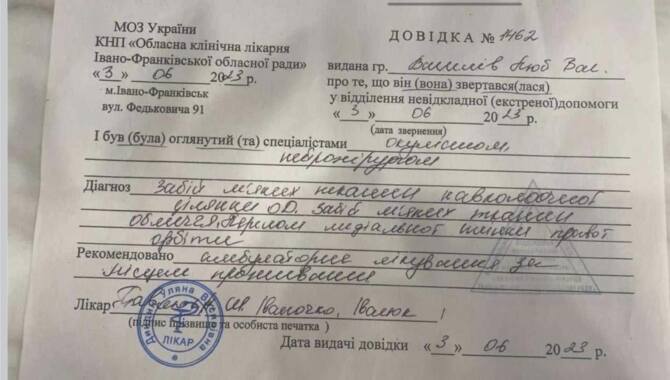 МОЗ України
КНП «Обласна клінічна лікарня
Івано-Франківської обласної ради»
«3» 06 2023 р.
м.Івано-Франківськ
вул. Федьковича 91
ДОВІДКА № 1462
видана гр. Василів Люб Вас.
про те, що він (вона) звертався(лася)
у відділення невідкладної (екстреної)допомоги
«3» 06 2023 р.
(дата звернення)
І був (була) оглянутий (та) спеціалістами окулістом,
нейрохірургом
Діагноз Забій мяких тканин навколоочної
ділянки OD. Забій мяких тканин
обличчя. Перелом медіальної стінки правої
орбіти
Рекомендовано амбулаторне лікування за
місцем проживання
Лікар Іваночко, Івасюк
(підпис прізвище та особиста печатка)
Уляна
ЛІКАР
Дата видачі довідки «3» 06 2023 р.